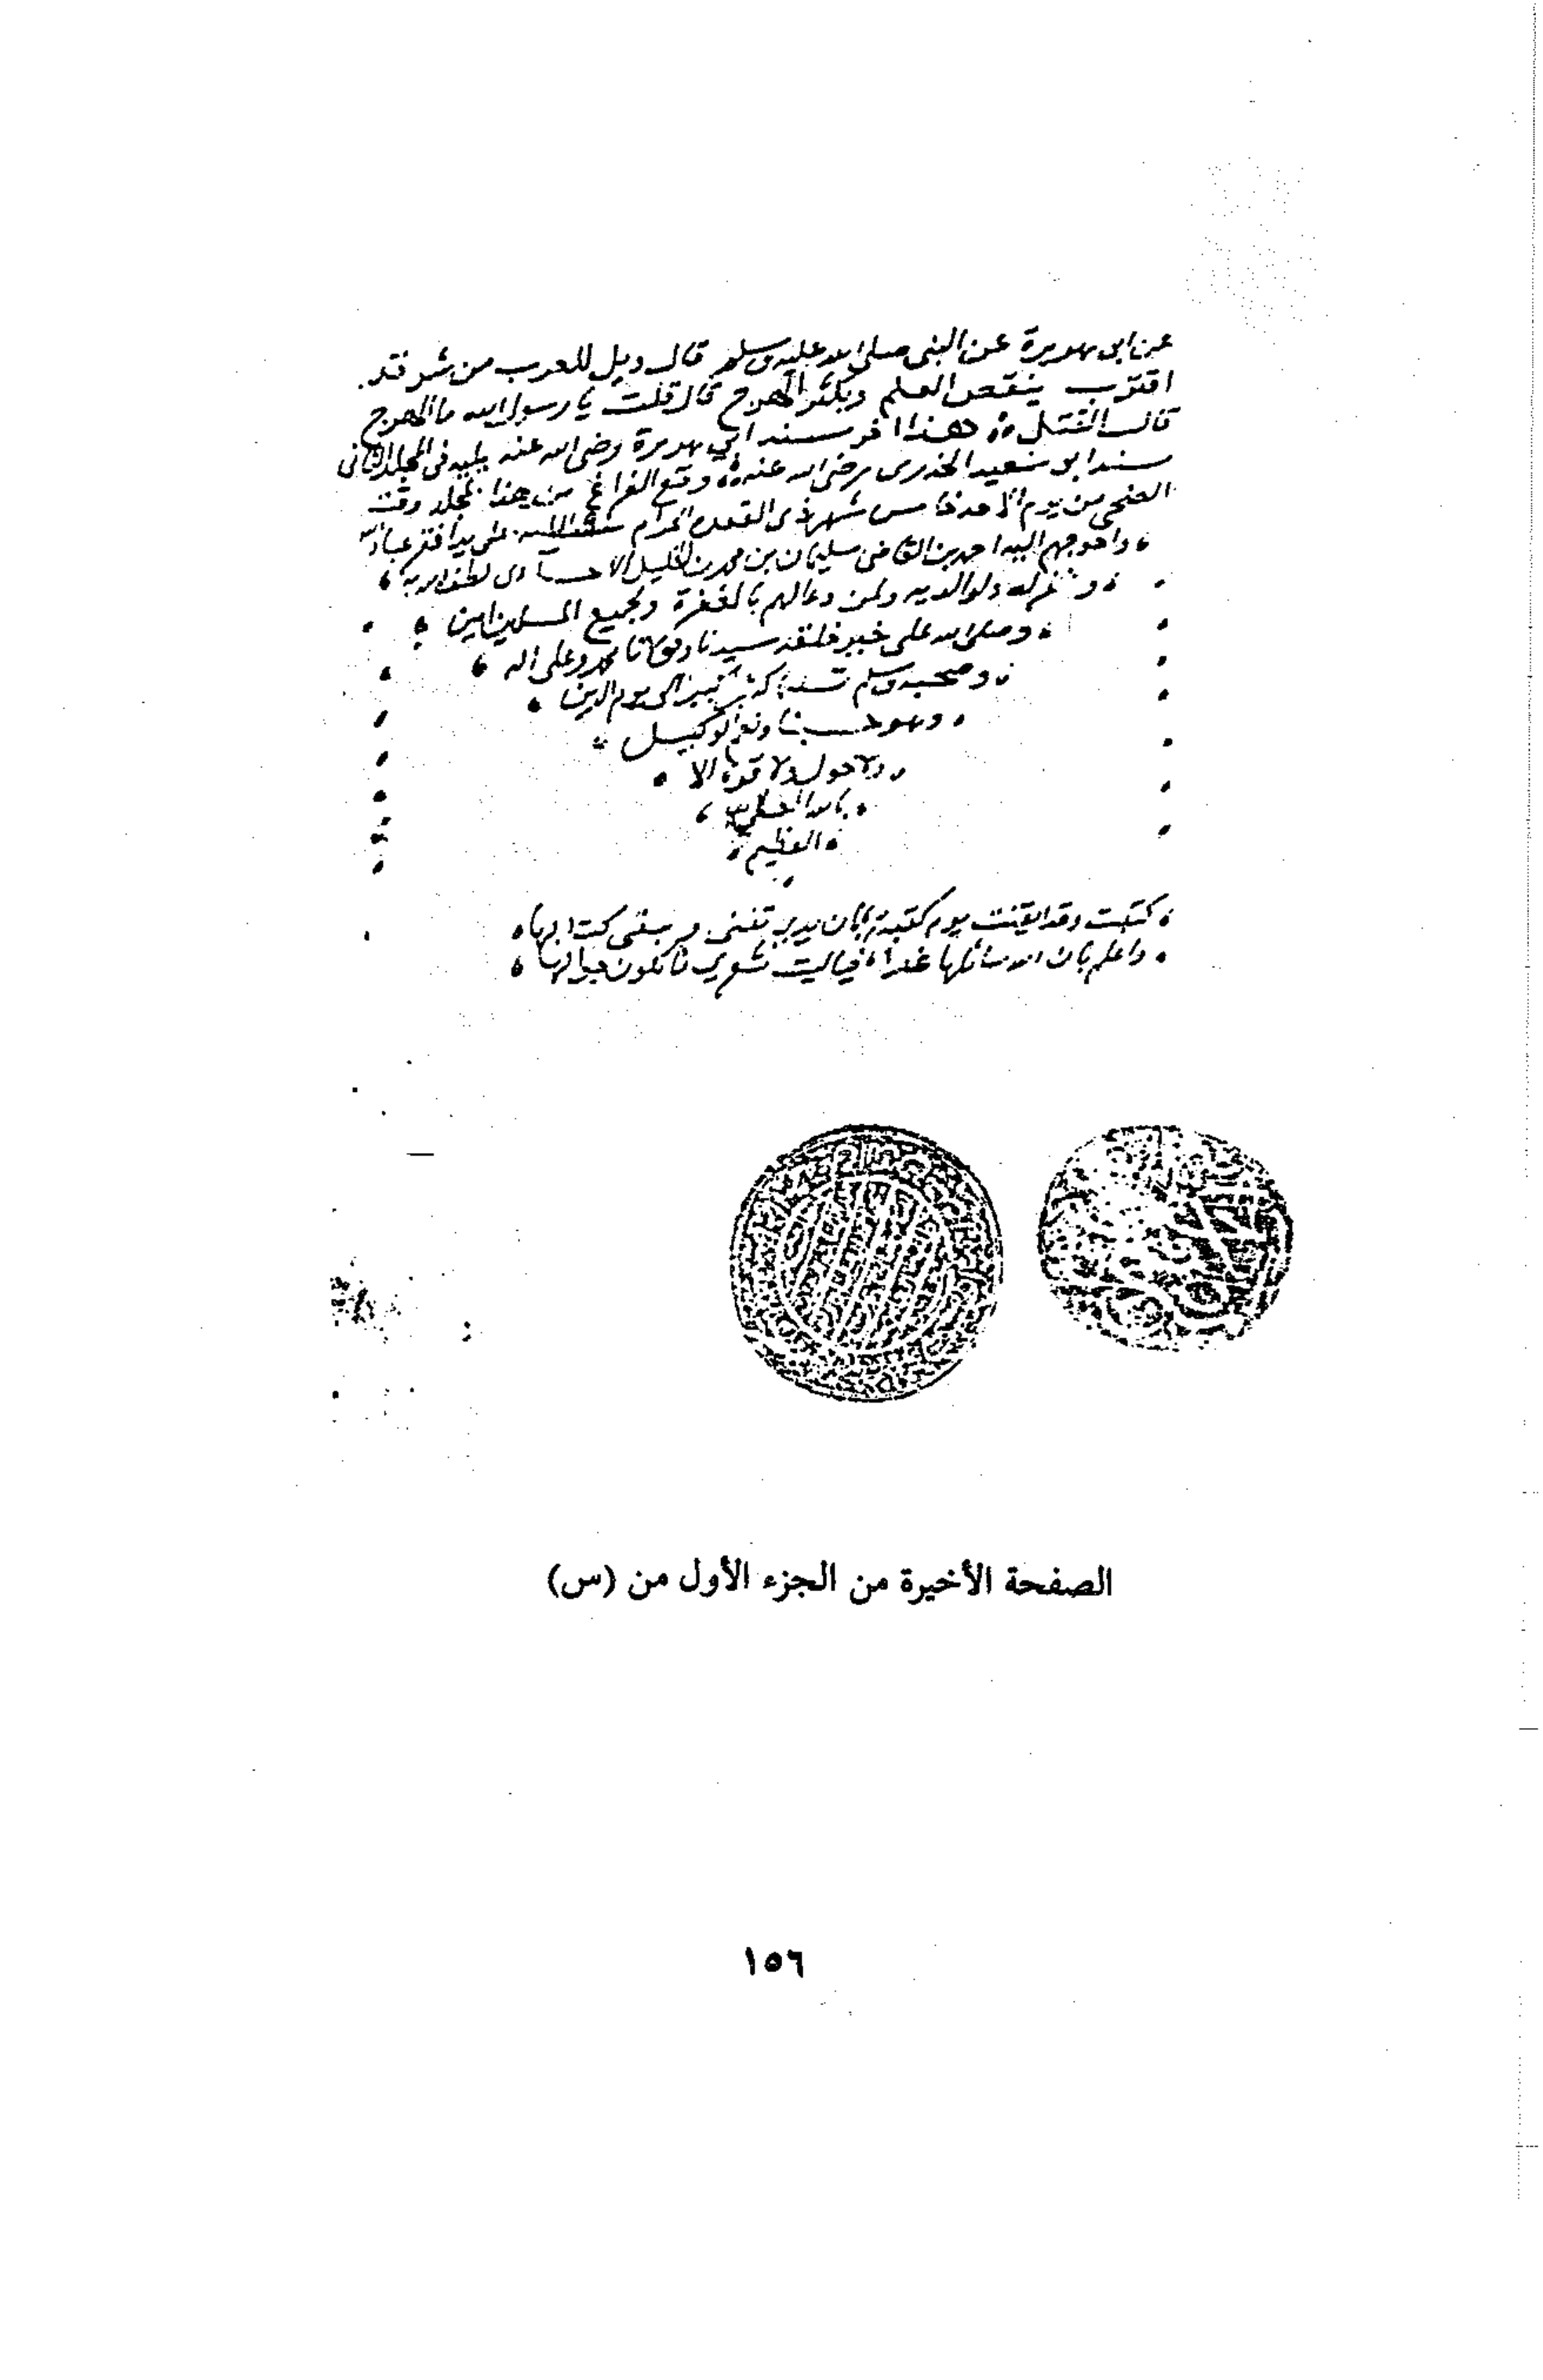 عن ابى هريرة عن النبى صلى الله عليه وسلم قال ويل للعرب من شر قد
اقترب ينقص العلم ويكثر الهرج قال قلت يا رسول الله ما الهرج
قال القتل هذا اخر مسند ابي هريرة رضى الله عنه يليه فى المجلد الثانى
مسند ابو سعيد الخدرى رضى الله عنه وقع الفراغ من هذا المجلد وقت
الضحى من يوم الاحد خامس شهر ذى القعدة الحرام على يد افقر عباد الله
واحوجهم اليه احمد بن القاضى سليمان بن محمد بن الخليل الاحسآءى لطف الله به
وغفر له ولوالديه ولمن دعا لهم بالمغفرة ولجميع المسلمين امين
وصلى الله على خير خلقه سيدنا ومولانا محمد وعلى اله
وصحبه وسلم تسليما كثيرا كثيرا الى يوم الدين
وهو حسبنا ونعم الوكيل
ولا حول ولا قوة الا
بالله العلي
العظيم
كتبت وقد ايقنت يوم كتبتها بان يدى تفنى ويبقى كتابها
واعلم بان الله سائلها غدا فياليت شعري ما يكون جوابها
الصفحة الأخيرة من الجزء الأول من (س)
١٥٦